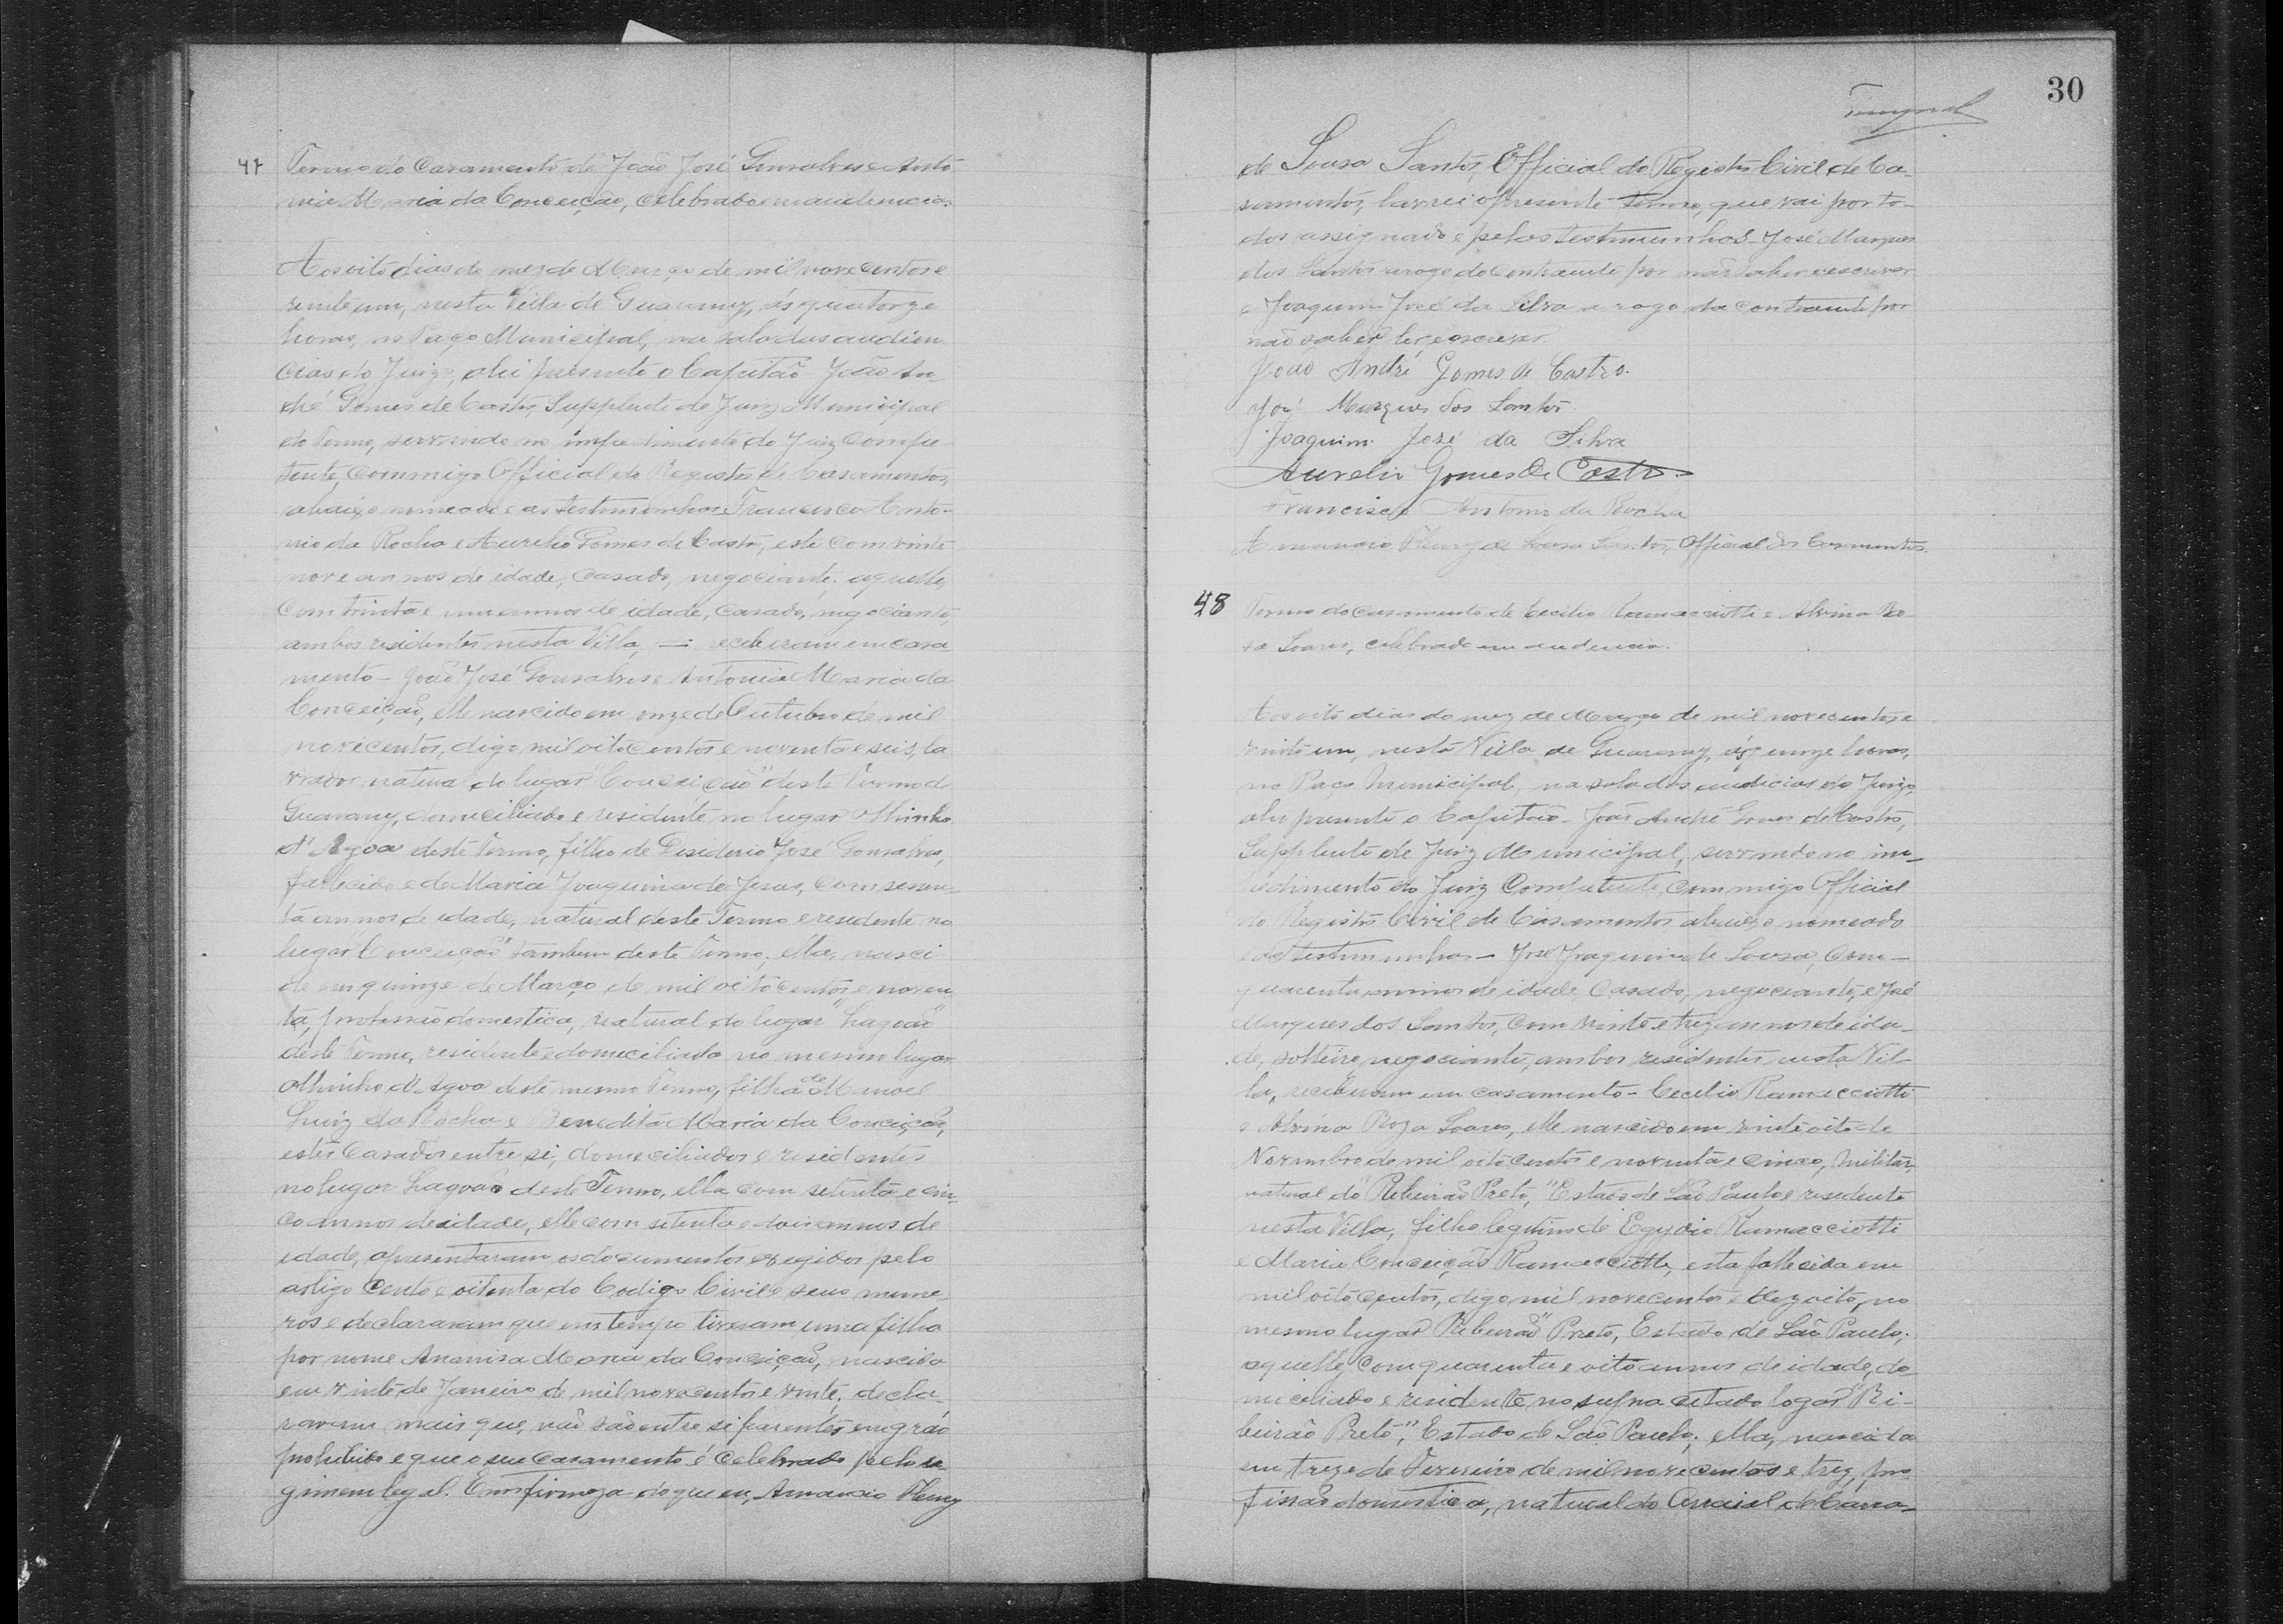 47
Termo do Casamento de João José Gonsalves e Anto
nia Maria da Conceição, celebrado em audiencia.
Aos oito dias do mez de Março de mil nove centos e
vinte um, nesta Villa de Guarany, ás quatorze
horas, no Paço Municipal, na sala das audien
cias do Juizo, ahi presente o Capitão João An
dré Gomes de Castro, Supplente de Juiz Municipal
do Termo, servindo no impedimento do Juiz Compe-
tente, commigo Official do Registro de Casamentos,
abaixo nomeado e as testemunhas Francisco Anto-
nio da Rocha e Aurelio Gomes de Castro, este com vinte
nove annos de idade, casado, negociante; aquelle,
com trinta e um annos de idade, casado, negociante,
ambos residentes nesta Villa, — receberam em casa
mento — João José Gonsalves e Antonia Maria da
Conceição, elle nascido em onze de Outubro de mil
novecentos, digo mil oito centos e noventa e seis, la
vrador natural do lugar "Conceição" deste Termo de
Guarany, domiciliado e residente no lugar Olhinho
d'Agoa deste Termo, filho de Desiderio José Gonsalves,
fallecido e de Maria Joaquina de Jesus, com sessen-
ta annos de idade, natural deste Termo e residente no
lugar "Conceição" tambem deste Termo; ella, nasci
da em quinze de Março de mil oito centos e noven
ta, profissão domestica, natural do lugar "Lagoão"
deste Termo, residente e domiciliada no mesmo lugar
Olhinho d'Agoa deste mesmo Termo, filha de Manoel
Luiz da Rocha e Benedita Maria da Conceição,
estes casados entre si, domiciliados e residentes
no lugar Lagoão deste Termo, ella com setenta e cin-
co annos de idade, elle com setenta e dois annos de
idade, apresentaram os documentos exegidos pelo
artigo cento e oitenta do Codigo Civil e seus nume
ros e declararam que em tempo tiveram uma filha
por nome Ananisa Maria da Conceição, nascida
em vinte de Janeiro de mil nove centos e vinte; decla-
raram mais que, não são entre si parentes em gráo
prohibido e que o seu casamento é celebrado pelo re
gimem legal. Em firmeza do que eu, Amancio Fleury
30
de Sousa Santos, Official do Registro Civil de Ca-
samentos, lavrei o presente termo, que vai por to-
dos assignado e pelas testemunhas José Marques
dos Santos a rogo do contraente por não saber escrever
e Joaquim José da Silva a rogo da contraente por
não saber ler e escrever.
João André Gomes de Castro.
José Marques dos Santos
Joaquim José da Silva
Aurelio Gomes de Castro
Francisco Antonio da Rocha
Amancio Fleury de Sousa Santos, Official dos Casamentos.
48
Termo do casamento de Cecilio Ramacciotti e Alvina Ro
sa Soares, celebrado em audencia.
Aos oito dias do mez de Março de mil nove centos e
vinte um, nesta Villa de Guarany, ás quinze horas,
no Paço Municipal, na sala das audiecias do Juizo,
ahi presente o Capitão João André Gomes de Castro,
Supplente de Juiz Municipal, servindo no im-
pedimento do Juiz Competente, commigo Official
do Registro Civil de Casamentos abaixo nomeado
e as testemunhas — José Joaquim de Sousa, com —
quarenta annos de idade, casado, negociante, e José
Marques dos Santos, com vinte e trez annos de ida-
de, solteiro, negociante, ambos residentes nesta Vil-
la, receberam em casamento — Cecilio Ramacciotti
e Alvina Roza Soares, elle nascido em vinte oito de
Novembro de mil oito centos e noventa e cinco, militar,
natural do "Ribeirão Preto," Estado de São Paulo e residente
nesta Villa, filho legitimo de Egydio Ramacciotti
e Maria Conceição Ramacciotti, esta fallecida em
mil oito centos, digo mil nove centos e dezoito, no
mesmo lugar "Ribeirão" Preto, Estado de São Paulo;
aquelle, com quarenta e oito annos de idade, do
miciliado e residente no supra citado logar "Ri-
beirão Preto," Estado de São Paulo; ella, nascida
em treze de Fevereiro de mil nove centos e trez, pro
fissão domestica, natural do Arraial de Cana-